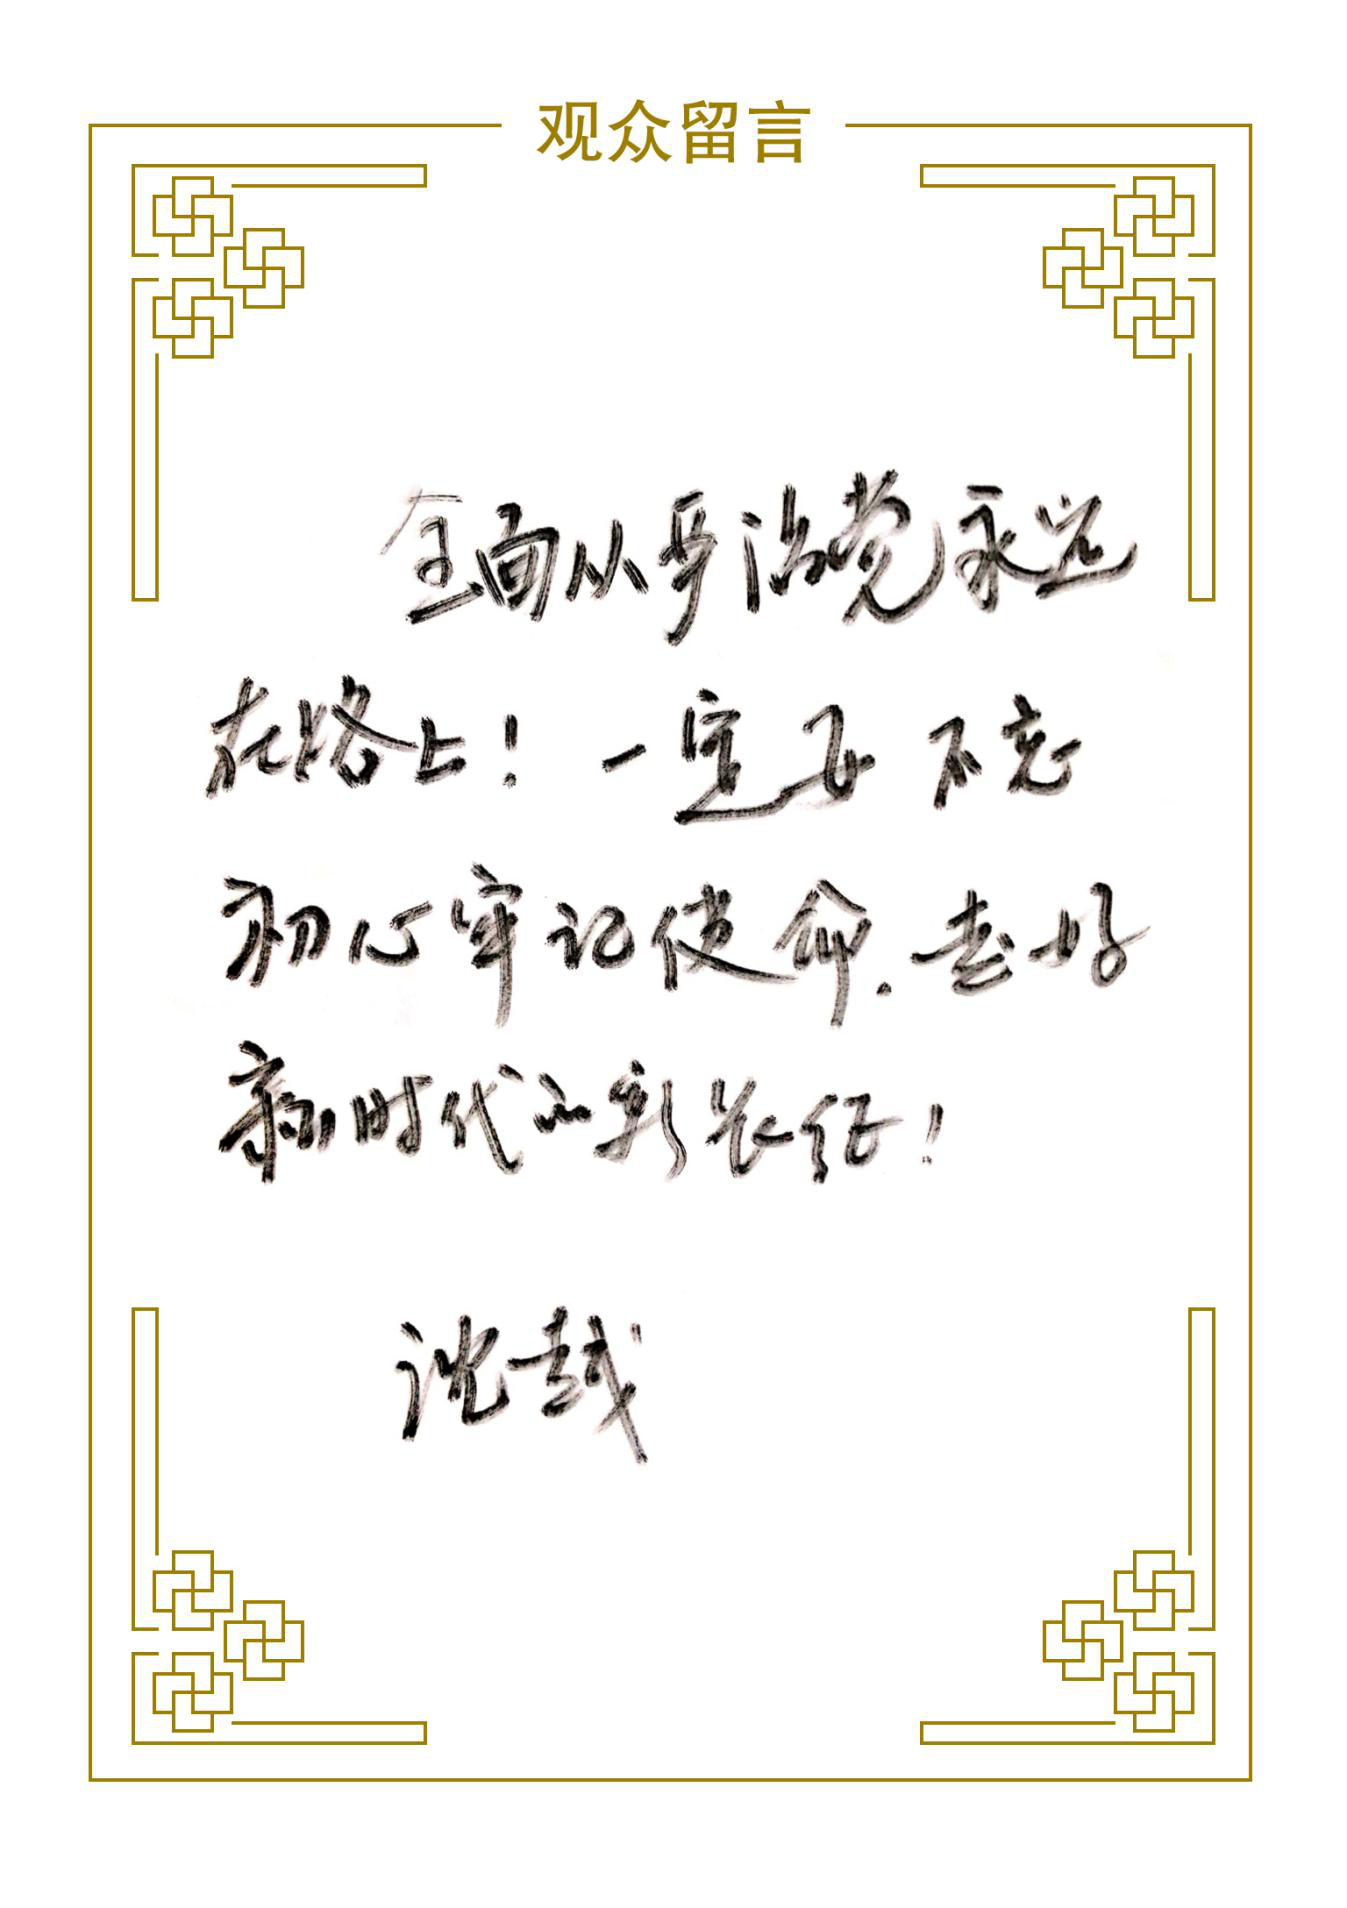 观众留言
全面从严治党永远
在路上！一定要不忘
初心牢记使命.走好
新时代的新长征！
沈越